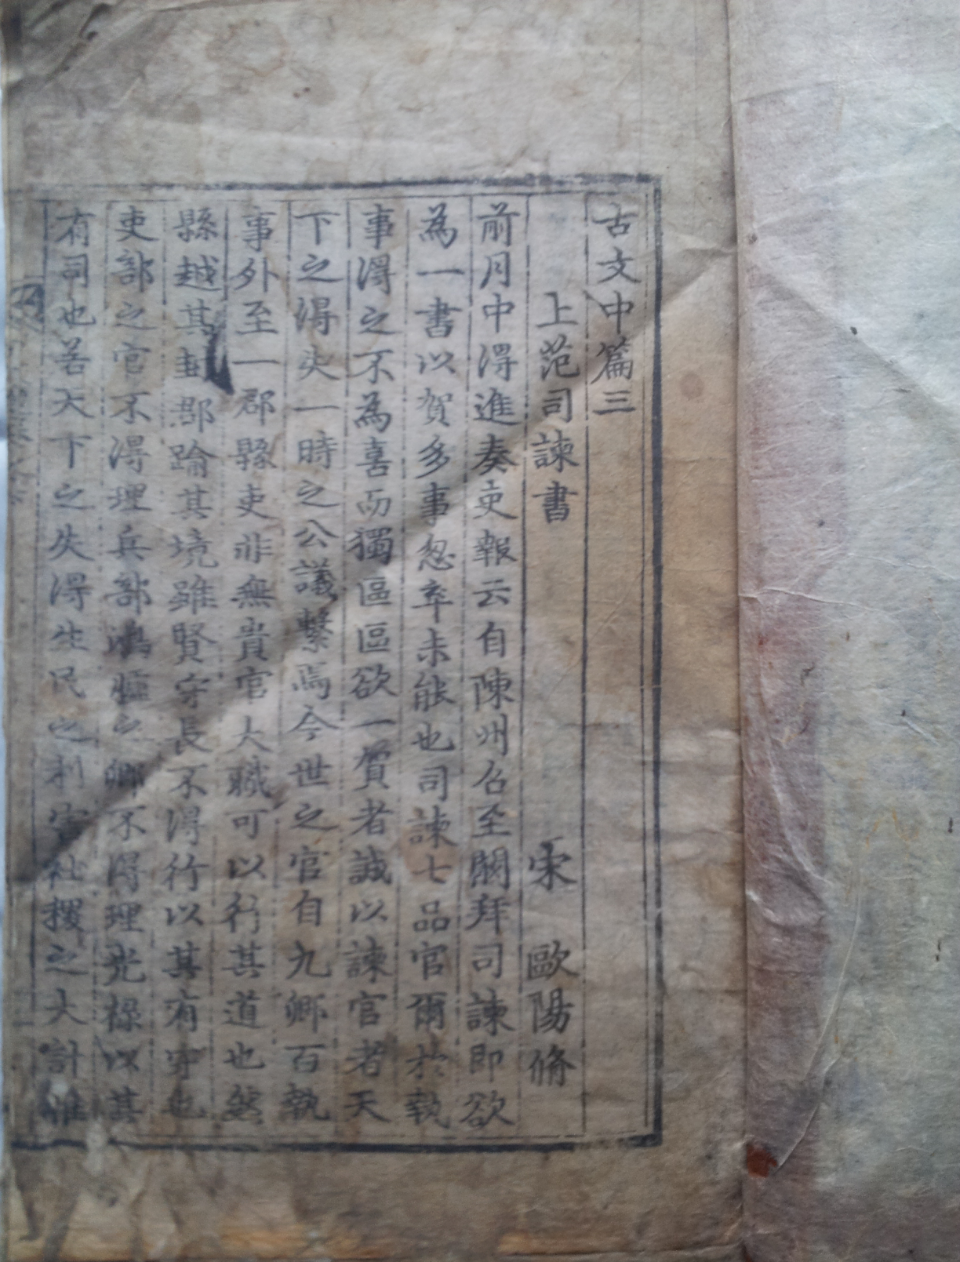 古文中篇三
上范司諫書 宋 歐陽脩
前月中得進奏吏報云自陳州召至闕拜司諫即欲
為一書以賀多事怱卒未能也司諫七品官爾於執
事得之不為喜而獨區區欲一賀者誠以諫官者天
下之得失一時之公議繫焉今世之官自九卿百執
事外至一郡縣吏非無貴官大職可以行其道也然
縣越其封郡踰其境雖賢守長不得行以其有守也
吏部之官不得理兵部鴻臚之卿不得理光祿以其
有司也若天下之失得生民之利害社稷之大計惟